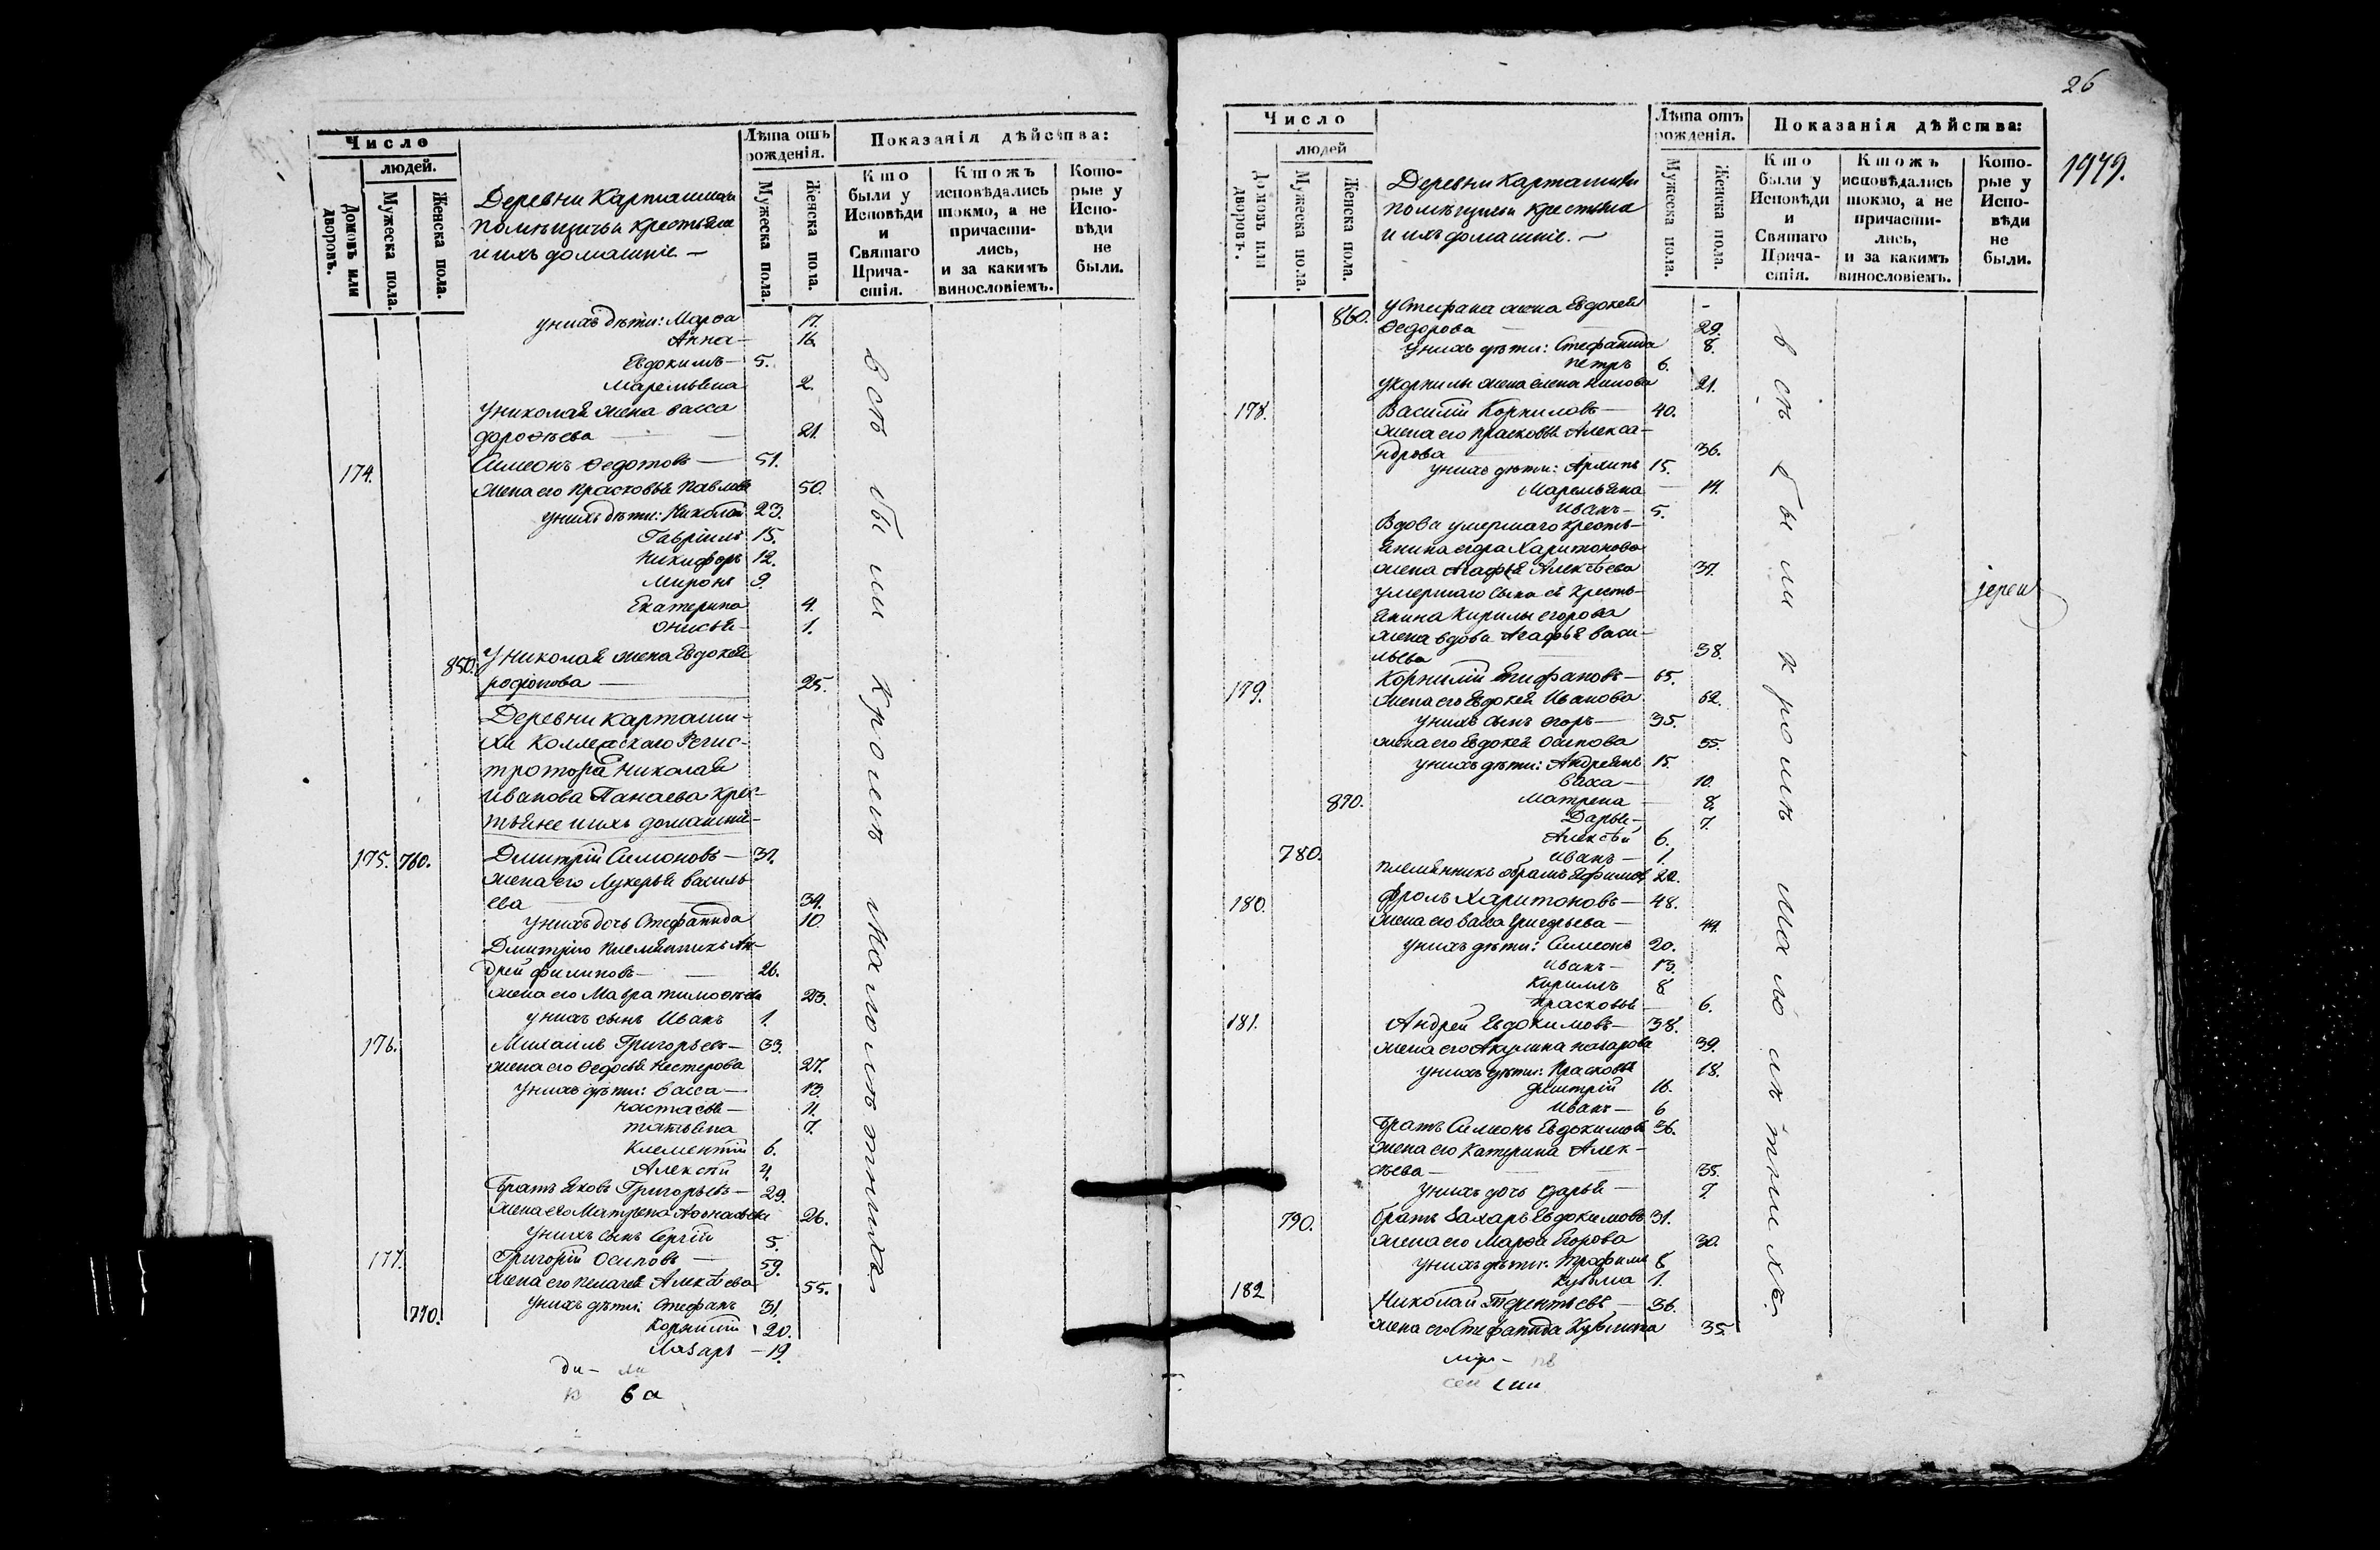 Число
людей.
Домовъ или дворовъ.
Мужеска пола.
Женска пола.
Деревни Карташихи
помѣщичьи крестьяне
и ихъ домашніе. —
Лѣта отъ рожденія.
Мужеска пола.
Женска пола.
Показанія дѣйства:
Кто были у Исповѣди и Святаго Причастія.
Ктожъ исповѣдались токмо, а не причастились, и за какимъ винословіемъ.
Которые у Исповѣди не были.
у нихъ дѣти: Марѳа 17.
Анна — 16.
Евдокимъ — 5.
Маремьяна 2.
У николая жена васса
дороѳѣева — 21.
174. Симеонъ Ѳедотовъ — 51.
жена его Прасковья Павлова 50.
у нихъ дѣти: Николай 23.
Гавріилъ 15.
Никифоръ 12.
Миронъ 9.
Екатерина 4.
Онисья — 1.
850. У Николая жена Евдокея
родіонова — 25.
Деревни карташи-
хи Коллежскаго Регис-
тротора Николая
Иванова Панаева крес-
тьяне и ихъ домашніе —
175. 760. Дмитрій Симоновъ — 37.
жена его Лукерья василь-
ева — 34.
у нихъ дочь Стефанида 10.
Дмитрію племянникъ Ан-
дрей филиповъ — 26.
жена его Мавра тимоѳѣева 23.
у нихъ сынъ Иванъ 1.
176. Михаилъ Григорьевъ — 33.
жена его Ѳедосья Нестерова 27.
у нихъ дѣти: васса — 13.
настасья — 11.
татьяна 7.
Клементій 6.
Алексѣй 4.
Братъ Яковъ Григорьевъ — 29.
жена его Матрена Аѳонасьева 26.
у нихъ сынъ Сергѣй 5.
177. Григорій Осиповъ — 59.
жена его пелагея Алексѣева 55.
770. у нихъ дѣти: Стефанъ 31.
Корнилій 20.
Лазарь — 19.
всѣ были кромѣ малолѣтнихъ
ва
26
1979.
Число
людей
Домовъ или дворовъ.
Мужеска пола.
Женска пола.
Деревни Карташихи
помѣщичьи крестьяне
и ихъ домашніе. —
Лѣта отъ рожденія.
Мужеска пола.
Женска пола.
Показанія дѣйства:
Кто были у Исповѣди и Святаго Причастія.
Ктожъ исповѣдались токмо, а не причастились, и за какимъ винословіемъ.
Которые у Исповѣди не были.
860. У Стефана жена Евдокея
Ѳедорова — 29.
у нихъ дѣти: Стефанида 8.
петръ 6.
у корнилы жена елена нилова 21.
178. Василій Корниловъ — 40.
жена его прасковья Алекса-
ндрова — 36.
у нихъ дѣти: Архипъ 15.
Маремьяна — 14.
Иванъ — 5.
Вдова умершаго кресть-
янина егора Харитонова
жена Агафья Алексѣева 37.
умершаго сына ее кресть-
янина Кирилы егорова
жена вдова Агафья васи-
льева — 38.
179. Корнилій Епифановъ — 65.
жена его Евдокея Иванова 62.
у нихъ сынъ егоръ — 35.
жена его Евдокея осипова 35.
у нихъ дѣти: Андреянъ 15.
10.
870. Матрена — 8.
Дарья — 7.
Алексѣй 6.
780. Иванъ — 1.
племянникъ Ефимовъ 20.
180. Фролъ Харитоновъ — 48.
жена его васса Григорьева — 44.
у нихъ дѣти: Симеонъ 20.
Иванъ — 13.
Кирилъ 8
прасковья — 6.
181. Андрей Евдокимовъ — 38.
жена его Акулина назарова 39.
у нихъ дѣти: Прасковья 18.
Дмитрій 16.
Иванъ — 6
Братъ Симеонъ Евдокимовъ 36.
жена его Катерина Алек-
сѣева — 35.
у нихъ дочь дарья — 7.
790. братъ Захаръ Евдокимовъ 31.
жена его Марѳа Егорова 30.
у нихъ дѣти: Трофимъ 8
Кузьма 1.
182 Николай Терентьевъ — 36.
жена его Стефанида Кузьмина 35.
всѣ были кромѣ малолѣтнихъ.
іерей